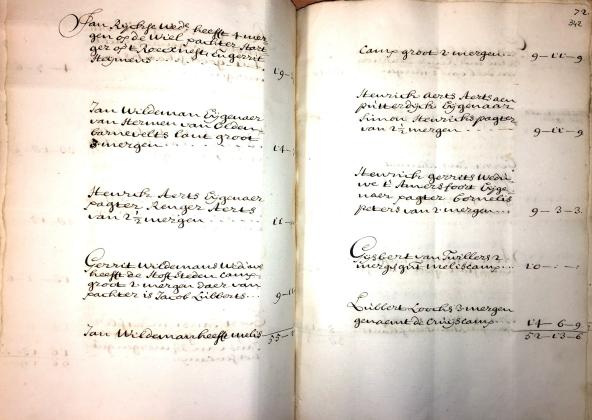 Jan Rijckse Wed.e heeft 4 mer
gen op de Wiel pachter
ger op't en gerrit
19 -
Jan Wildeman Eijgenaer
van Hermen van Olden
barnevelts lant groot
3 mergen 14 -
Henrich Aerts Eijgenaer
pagter Renger Aerts
van 2½ mergen 11 -
Gerrit Wildemans Weduwe
heefft de Hofsteden camp
groot 2 mergen daer van
pachter is Jacob Lubberts 9 - 11
Jan Wildeman heefft melis
55 -
72
342
Camp groot 2 mergen 9 - 11 - 9
Henrich Aerts Aertsen
putterdijck Eijgenaar
Simon Henrichs pagter
van 2½ mergen 9 - 11 - 9
Henrich gerrits Wedu
we t' Amersfoort Eijge
naer pagter Cornelis
peters van 2 mergen 9 - 3 - 3
Gijsbert van Zwillers 2
mergen int meliscamp 10 - : - :
Lubbert Loochs 3 mergen
genaemt de Cruijscamp 14 - 6 - 9
52 - 13 - 6